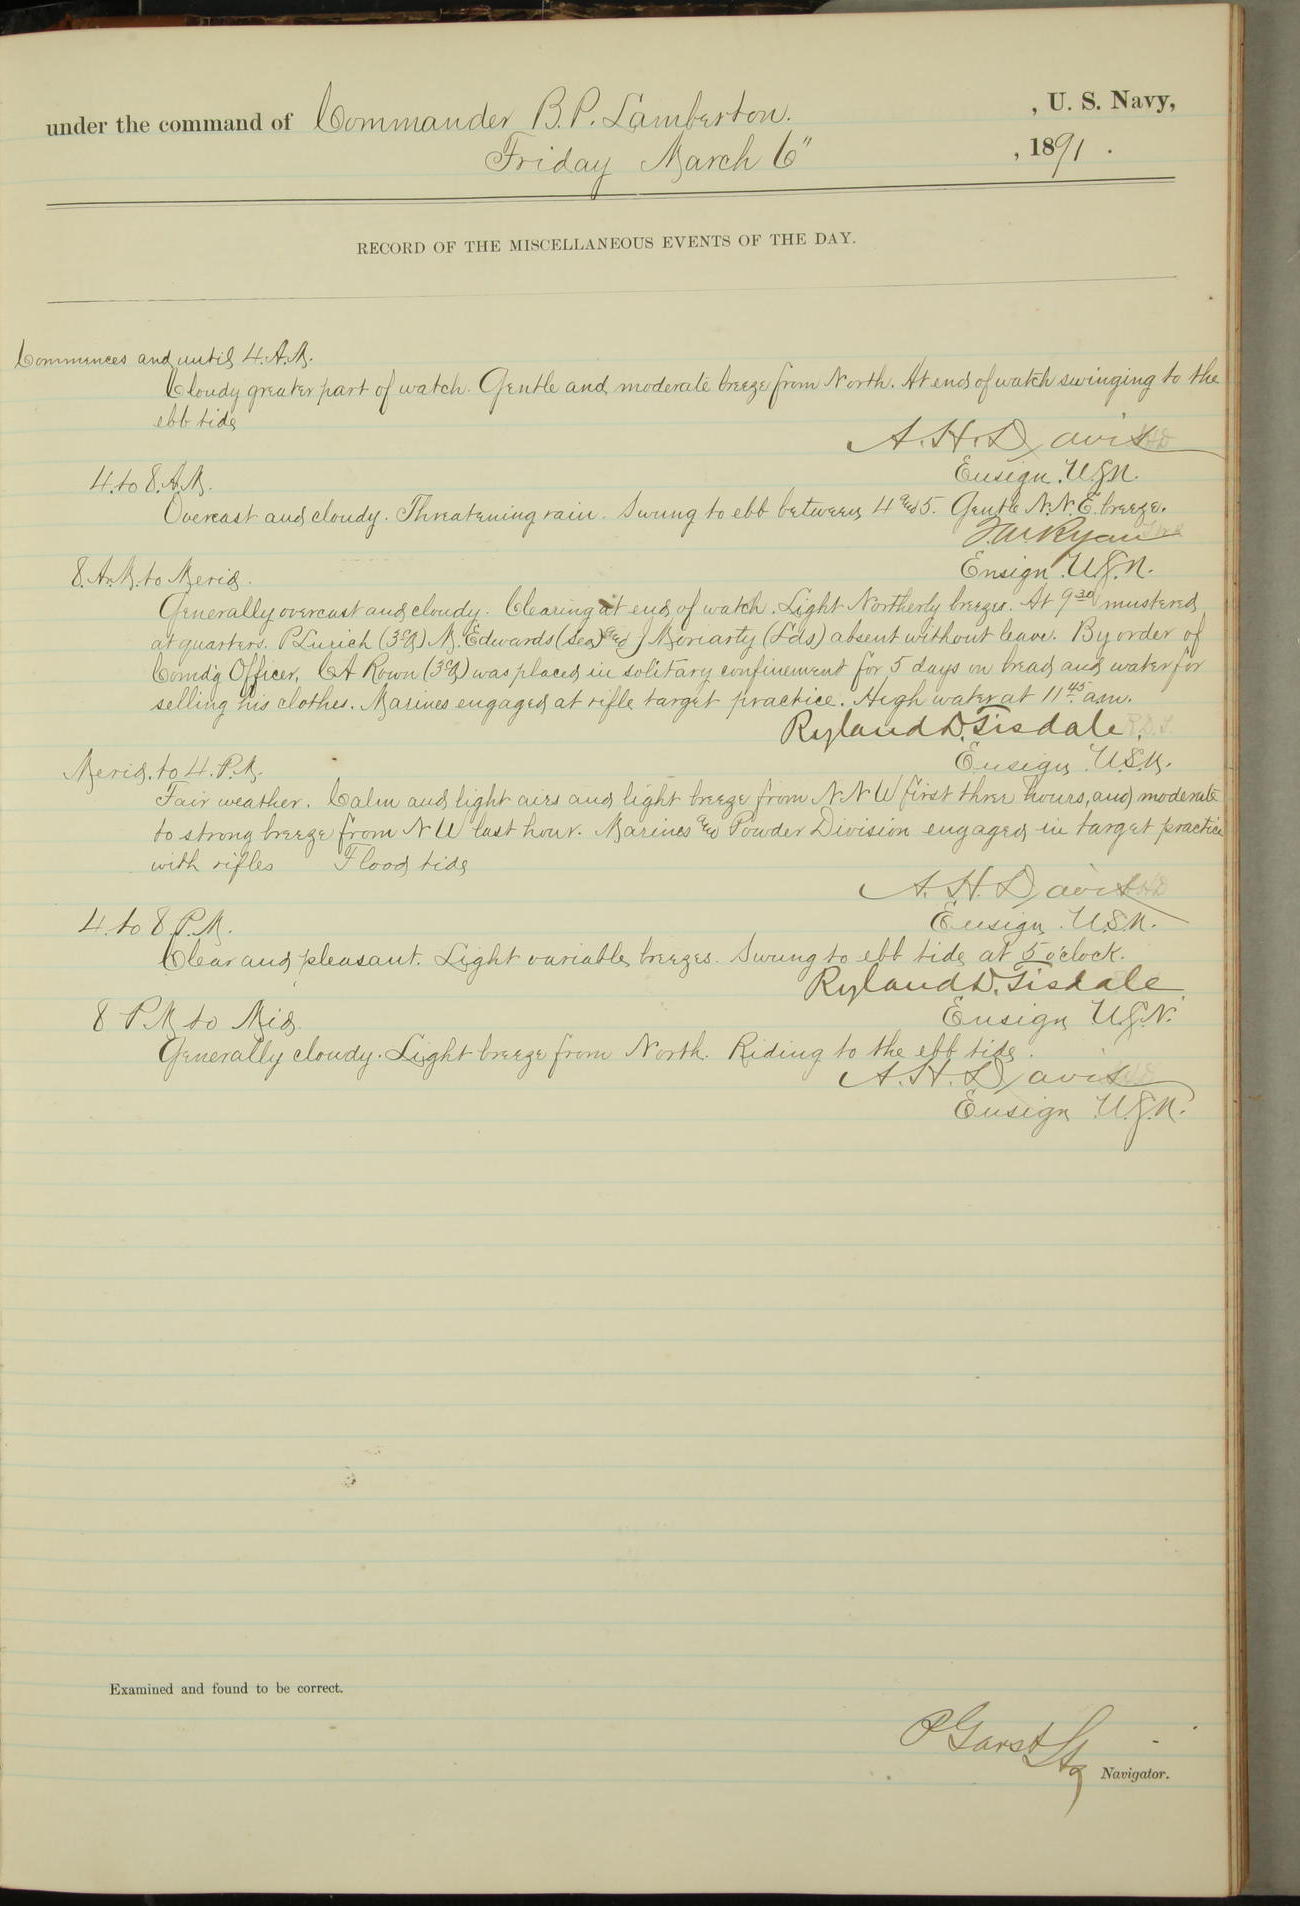 under the command of Commander B.P. Lamberton. , U. S. Navy,
Friday March 6" , 1891 .
RECORD OF THE MISCELLANEOUS EVENTS OF THE DAY.
Commences and until 4. A.M.
Cloudy greater part of watch. Gentle and moderate breeze from North. At end of watch swinging to the
ebb tide
A. H. Davis
Ensign. U.S.N.
4. to 8. A.M.
Overcast and cloudy. Threatening rain. Swung to ebb between 4 and 5. Gentle N.N.E. breeze.
Ryan
Ensign. U.S.N.
8. A.M. to Merid.
Generally overcast and cloudy. Clearing at end of watch. Light Northerly breezes. At 9 30 mustered
at quarters. P Lurich (3cf) M. Edwards (Sea) and J Moriarty (Lds) absent without leave. By order of
Comd'g Officer, CA Rown (3cf) was placed in solitary confinement for 5 days on bread and water for
selling his clothes. Marines engaged at rifle target practice. High water at 11 45 a.m.
Ryland D. Tisdale.
Ensign U.S.N.
Merid. to 4. P.M.
Fair weather. Calm and light airs and light breeze from N N W first three hours, and moderate
to strong breeze from N W last hour. Marines and Powder Division engaged in target practice
with rifles Flood tide
A. H. Davis
Ensign. U.S.N.
4. to 8 P.M.
Clear and pleasant. Light variable breezes. Swung to ebb tide at 5 o'clock.
Ryland D. Tisdale
Ensign U.S.N.
8 P.M to Mid.
Generally cloudy. Light breeze from North. Riding to the ebb tide.
A. H. Davis
Ensign U.S.N.
Examined and found to be correct.
P Garst Lt
Navigator.